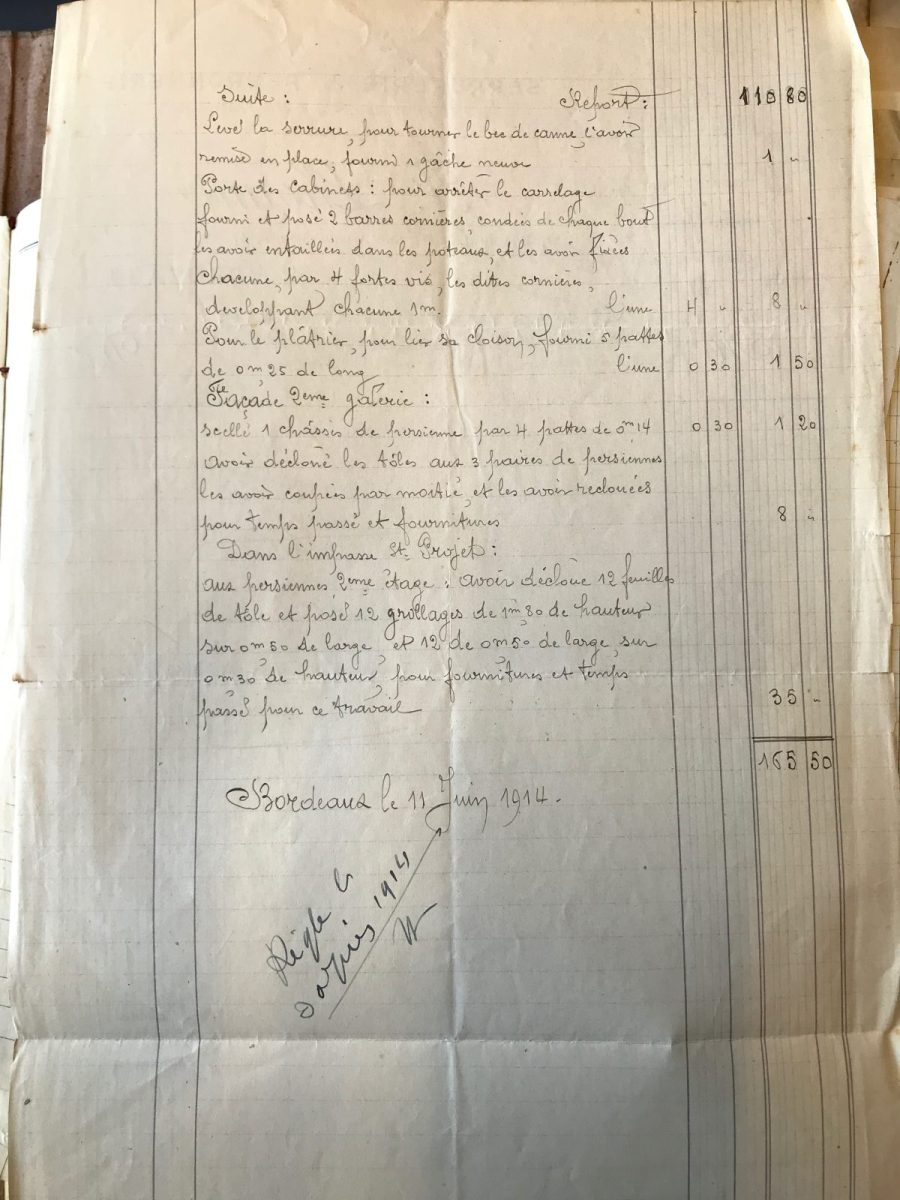 Suite : Report : 110 80
Levé la serrure, pour tourner le bec de canne, l'avoir
remise en place, fourni 1 gâche neuve 1 "
Porte des cabinets : pour arrêter le carrelage
fourni et posé 2 barres cornières, coudées de chaque bout
les avoir entaillées dans les poteaux, et les avoir fixées
chacune, par 4 fortes vis, les dites cornières,
developpant chacune 1m. l'une 4 " 8 "
Pour le plâtrier, pour lier sa cloison, fourni 5 pattes
de 0m,25 de long l'une 0 30 1 50
Façade 2eme galerie :
scellé 1 châssis de persienne par 4 pattes de 0m,14 0 30 1 20
avoir décloué les tôles aux 3 paires de persiennes
les avoir coupées par moitié, et les avoir reclouées
pour temps passé et fournitures 8 "
Dans l'impasse St. Projet :
aux persiennes 2eme étage : avoir décloué 12 feuilles
de tôle et posé 12 grillages de 1m,80 de hauteur
sur 0m,50 de large, et 12 de 0m,50 de large, sur
0m,30 de hauteur, pour fournitures et temps
passé pour ce travail 35 "
165 50
Bordeaux le 11 Juin 1914.
Réglé le
1914